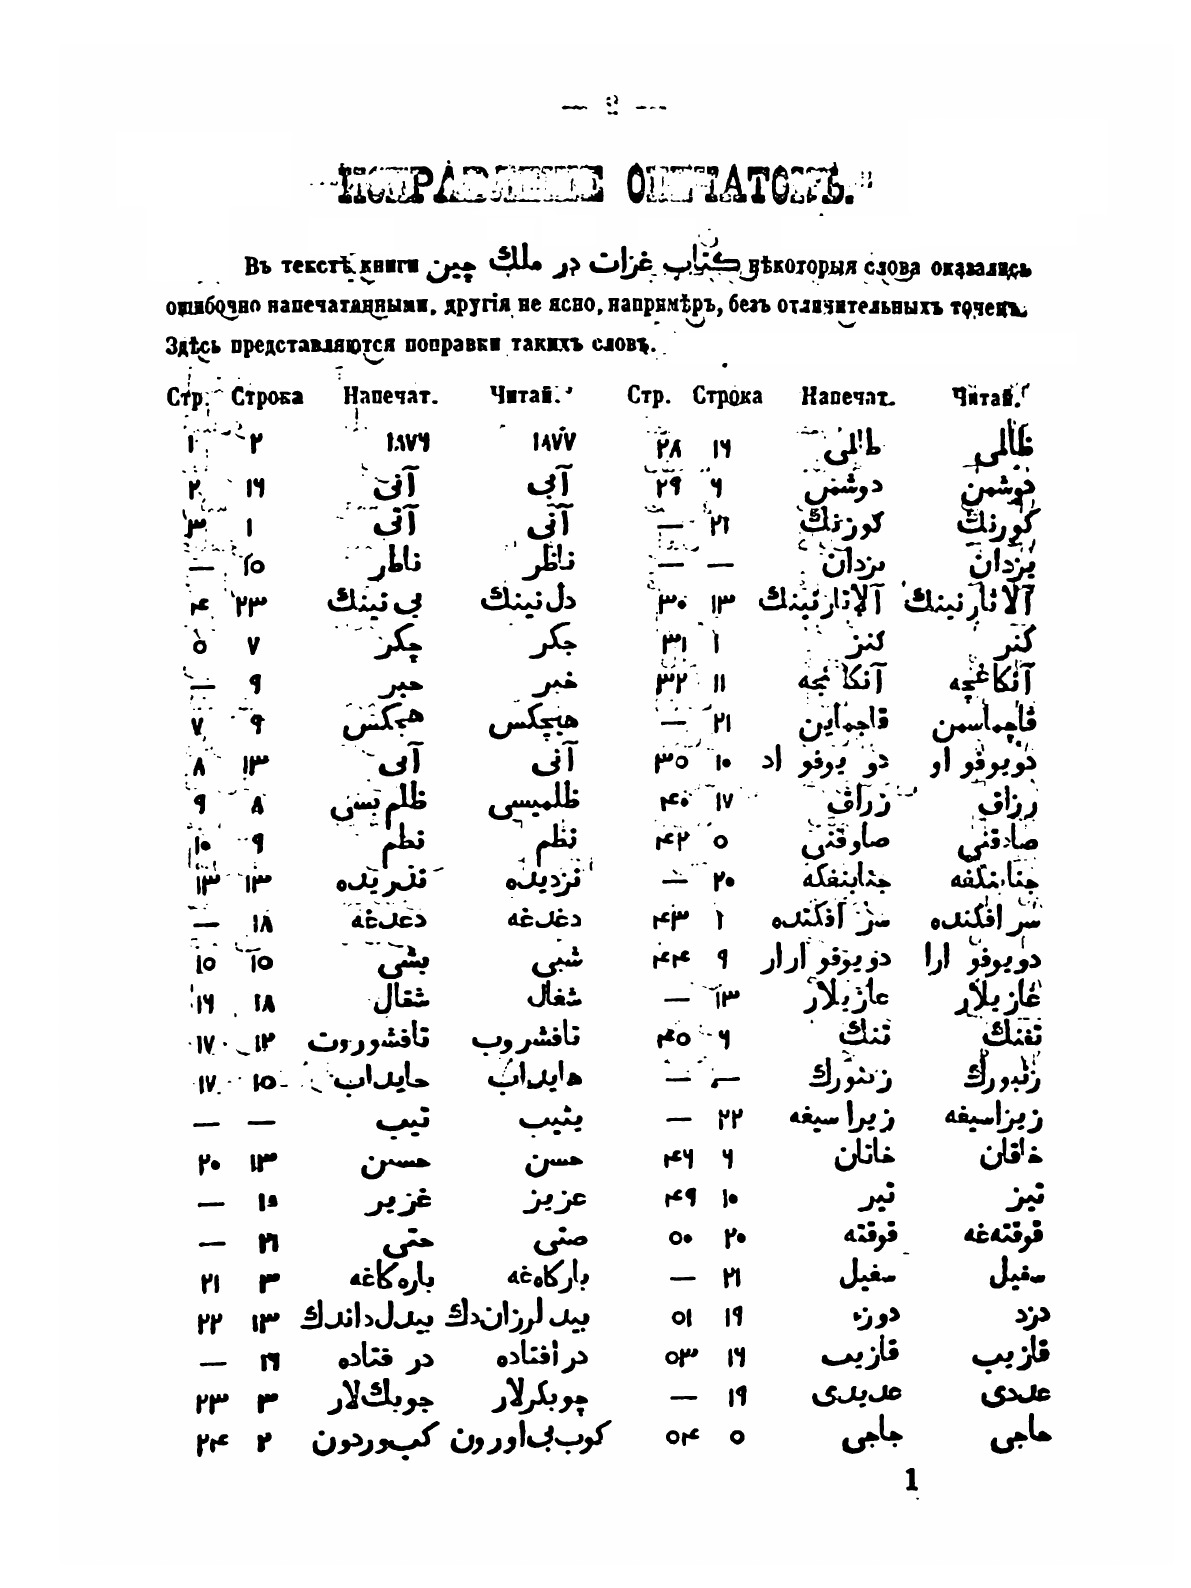 — 2 —
ИСПРАВЛЕНИЕ ОПЕЧАТОКЪ.
Въ текстѣ книги كتاب غزات در ملك چين нѣкоторыя слова оказались
ошибочно напечатанными, другія не ясно, напримѣръ, безъ отличительныхъ точекъ.
Здѣсь представляются поправки такихъ словъ.
Стр. Строка Напечат. Читай. Стр. Строка Напечат. Читай.
١ ٢ ١٨٧٦ ١٨٧٧ ٢٨ ١٦ طالى ظالمى
٢ ١٦ آنى آبى ٢٩ ٦ دوشنى دوشمن
٣ ١ آنى آنى — ٢١ كوزنك كورنك
— ١٥ ناطر ناظر — — بردان يزدان
۴ ٢٣ بى نينك دل نينك ٣٠ ١٣ آلاتار نينك آلاتار نينك
٥ ٧ چكر جكر ٣١ ١ كنز كنر
— ٩ حبر خبر ٣٢ ١١ آنكا نجه آنكاغچه
٧ ٩ هيجكس هيچكس — ٢١ قاجماين قاچماسمن
٨ ١٣ آبى آنى ٣٥ ١٠ دو يوقو اد دويوقو او
٩ ٨ ظلم يسى ظلميسى ۴٠ ١٧ زراق رزاق
١٠ ٩ نطم نظم ۴٢ ٥ صاوقنى صادقنى
١٣ ١٣ نذريده نزديده — ٢٠ جنابنفكه جنابنكفه
— ١٨ دعدغه دغدغه ۴٣ ١ سز افكنده سر افكنده
١٥ ١٥ بشى شبى ۴۴ ٩ دويوقو ارار دويوقو ارا
١٦ ١٨ شقال شغال — ١٣ عازيلار غازيلار
١٧ ١٢ تافشوروت تافشروب ۴٥ ٦ تنك تفنك
١٧ ١٥ حايداب هايداب — — زنئورك زنبورك
— — تيب يتيب — ٢٢ زيرا سيغه زيراسيغه
٢٠ ١٣ حسين حسن ۴٦ ٦ خانان خاقان
— ١٥ غزير عزيز ۴٩ ١٠ تير تيز
— ٢١ حتى صتى ٥٠ ٢٠ قوقته قوقته‌غه
٢١ ٣ باره كاغه باركاه‌غه — ٢١ سغيل سفيل
٢٢ ١٣ بيدلداندك بيد لرزان‌دك ٥١ ١٩ دوزد دزد
— ١٦ در فتاده در افتاده ٥٣ ١٦ قازيب قازيب
٢٣ ٣ جوبك لار چوبكرلار — ١٩ عديدى عددى
٢۴ ٢ كب وردون كوب بى اورون ٥۴ ٥ جاجى حاجى
1